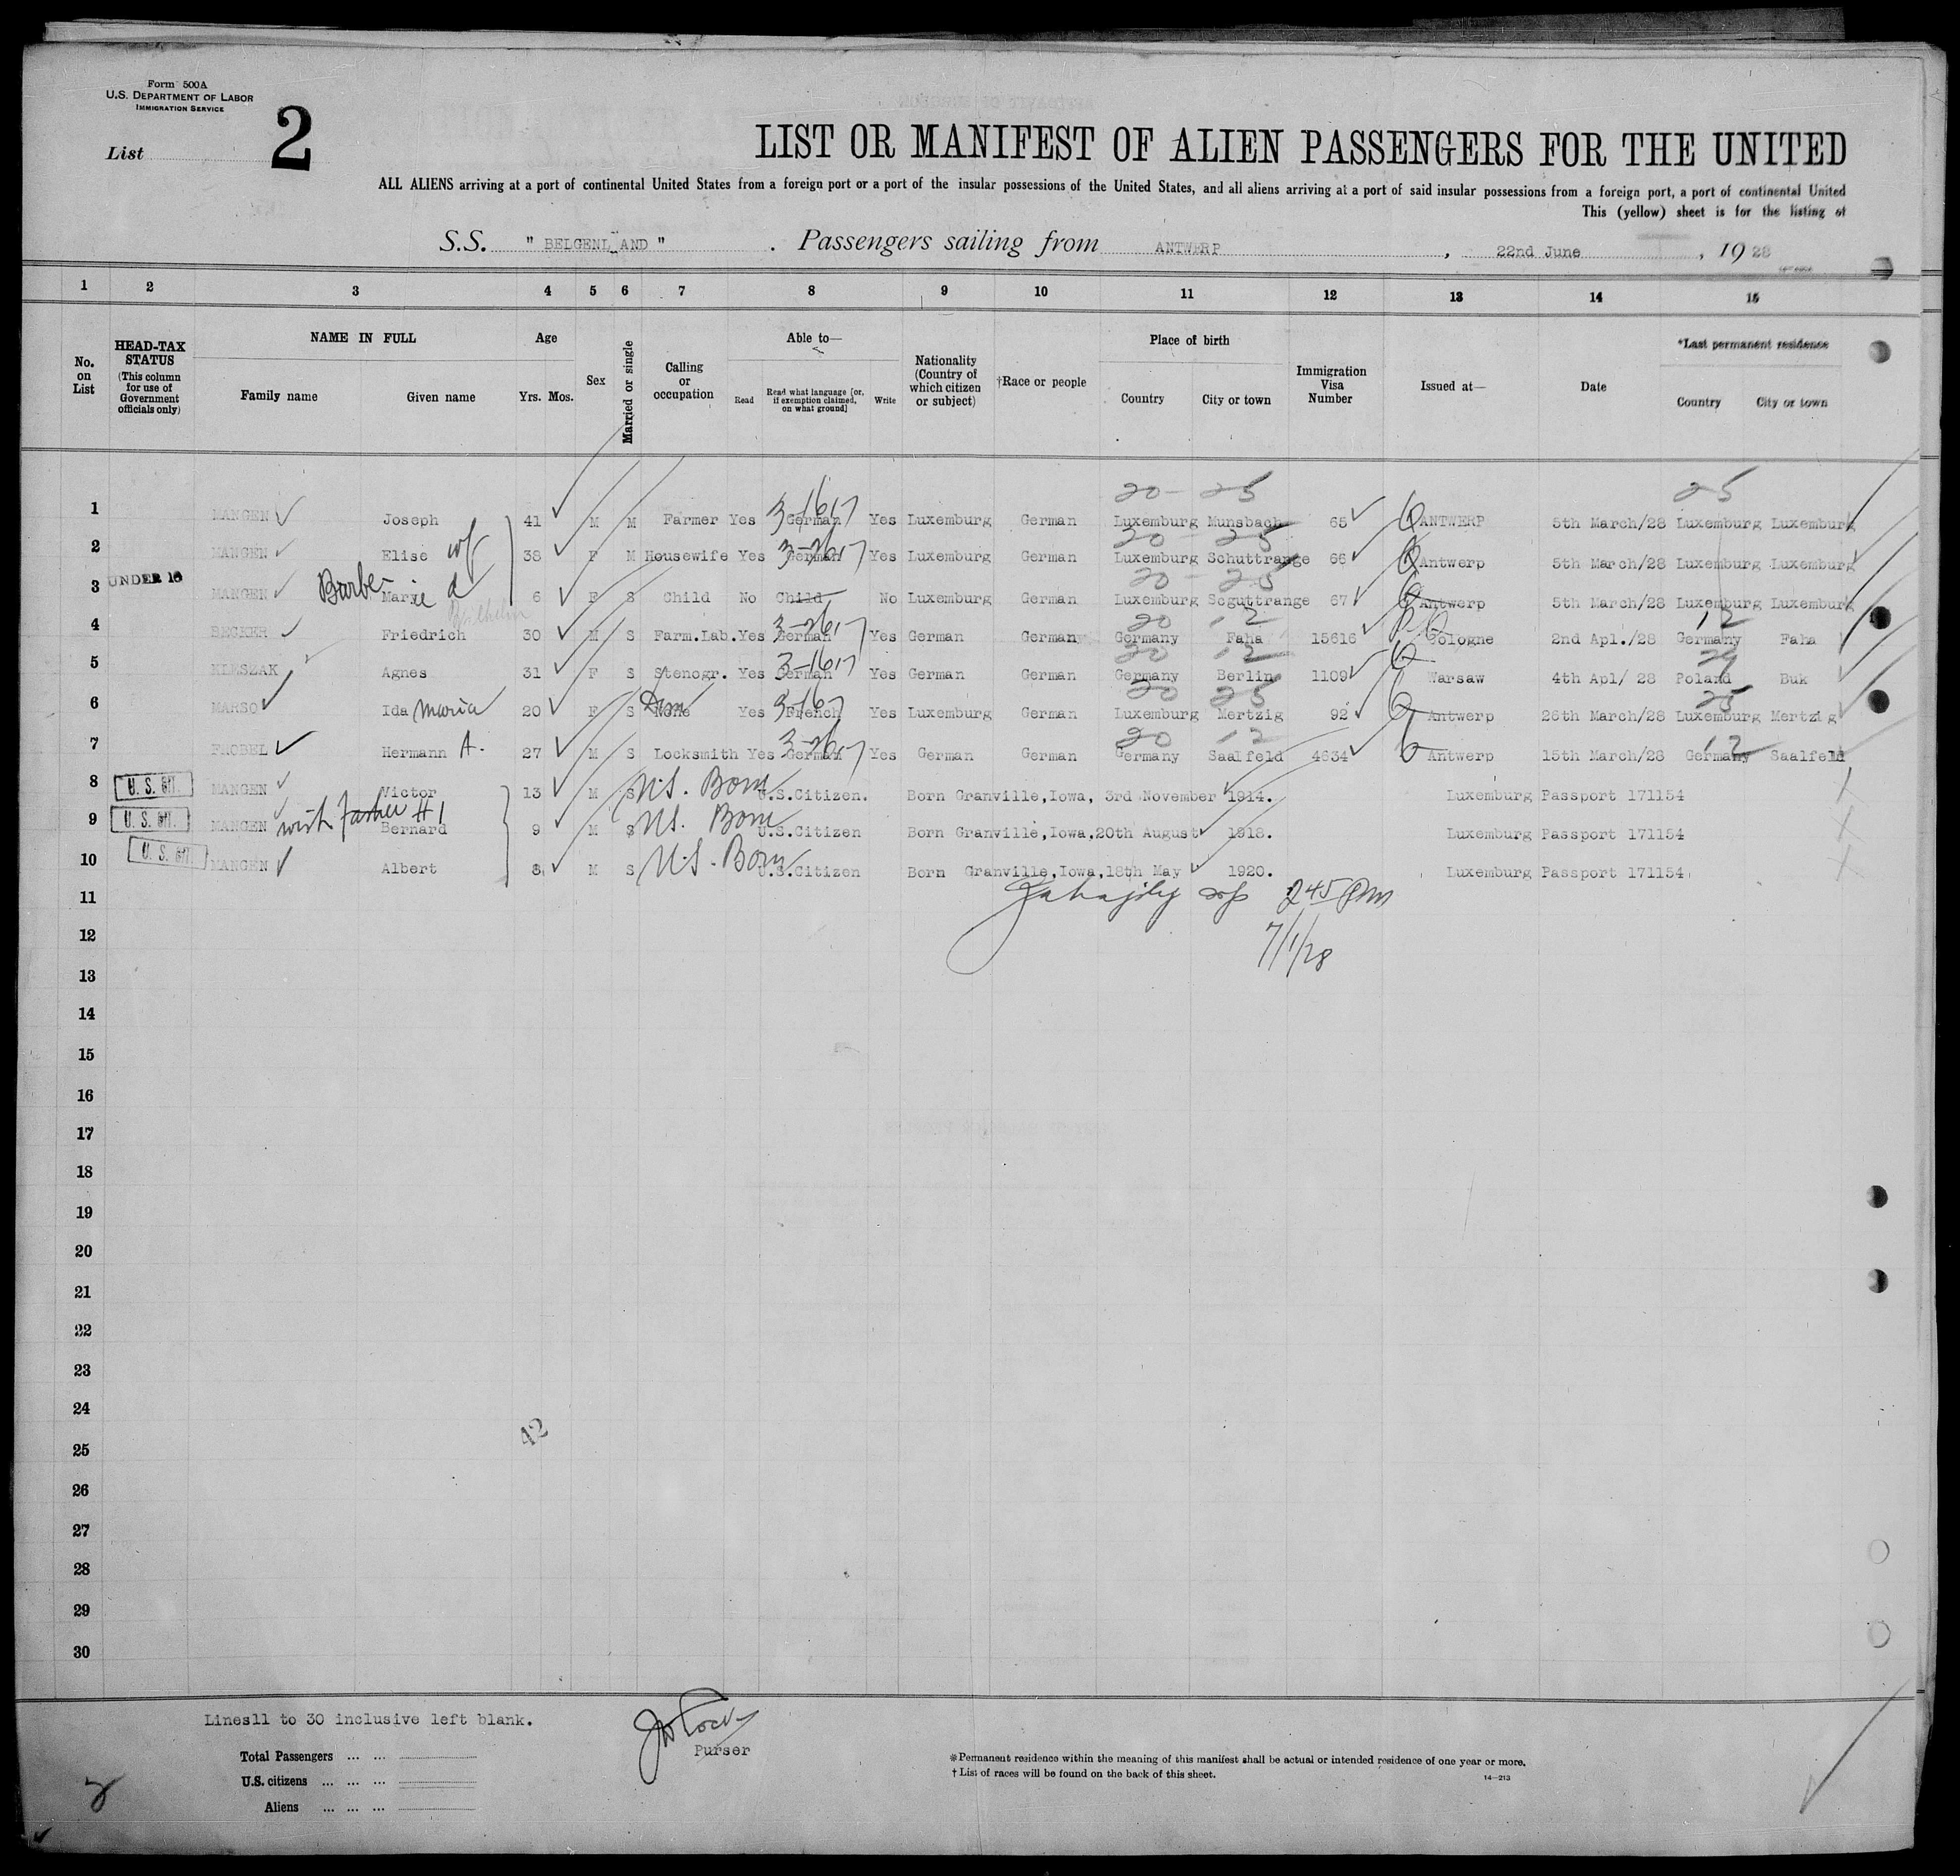 Form 500A
U.S. DEPARTMENT OF LABOR
IMMIGRATION SERVICE
List 2
LIST OR MANIFEST OF ALIEN PASSENGERS FOR THE UNITED
ALL ALIENS arriving at a port of continental United States from a foreign port or a port of the insular possessions of the United States, and all aliens arriving at a port of said insular possessions from a foreign port, a port of continental United
This (yellow) sheet is for the listing of
S.S. " BELGENLAND " . Passengers sailing from ANTWERP , 22nd June , 19 28
1 2 3 4 5 6 7 8 9 10 11 12 13 14 15
No. on List
HEAD-TAX STATUS (This column for use of Government officials only)
NAME IN FULL
Family name Given name
Age
Yrs. Mos.
Sex
Married or single
Calling or occupation
Able to—
Read Read what language [or, if exemption claimed, on what ground] Write
Nationality (Country of which citizen or subject)
†Race or people
Place of birth
Country City or town
Immigration Visa Number
Issued at—
Date
*Last permanent residence
Country City or town
20- 25 25
1 MANGEN Joseph 41 M M Farmer Yes German Yes Luxemburg German Luxemburg Munsbach 65 ANTWERP 5th March/28 Luxemburg Luxemburg
20 - 25
2 MANGEN Elise wf 38 F M Housewife Yes German Yes Luxemburg German Luxemburg Schuttrange 66 Antwerp 5th March/28 Luxemburg Luxemburg
20 - 25
3 UNDER 16 MANGEN Barbe- Marie d 6 F S Child No Child No Luxemburg German Luxemburg Scguttrange 67 Antwerp 5th March/28 Luxemburg Luxemburg
Wilhelm
20 12 12
4 BECKER Friedrich 30 M S Farm.Lab. Yes German Yes German German Germany Faha 15616 Cologne 2nd Apl./28 Germany Faha
20 12
5 KLESZAK Agnes 31 F S Stenogr. Yes German Yes German German Germany Berlin 1109 Warsaw 4th Apl/ 28 Poland Buk
20 25 25
6 MARSO Ida Maria 20 F S None Dom Yes French Yes Luxemburg German Luxemburg Mertzig 92 Antwerp 26th March/28 Luxemburg Mertzig
20 12 12
7 FROBEL Hermann A. 27 M S Locksmith Yes German Yes German German Germany Saalfeld 4634 Antwerp 15th March/28 Germany Saalfeld
8 U. S. MANGEN Victor 13 M S U.S. Born U.S.Citizen. Born Granville,Iowa, 3rd November 1914. Luxemburg Passport 171154
with father #1
9 U. S. MANGEN Bernard 9 M S U.S. Born U.S.Citizen Born Granville,Iowa,20th August 1918. Luxemburg Passport 171154
10 U. S. MANGEN Albert 8 M S U.S. Born U.S.Citizen Born Granville,Iowa,18th May 1920. Luxemburg Passport 171154
11 245 Pm
12 7/1/28
13
14
15
16
17
18
19
20
21
22
23
24
42
25
26
27
28
29
30
Lines11 to 30 inclusive left blank.
Purser
Total Passengers ... ...
U.S. citizens ... ... ...
Aliens ... ... ...
*Permanent residence within the meaning of this manifest shall be actual or intended residence of one year or more.
†List of races will be found on the back of this sheet.
14—213